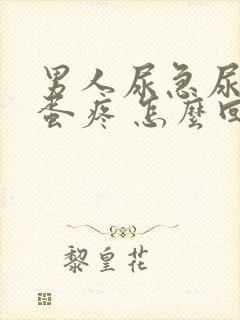 男人尿急尿
蛋疼 怎麽回
黎皇花